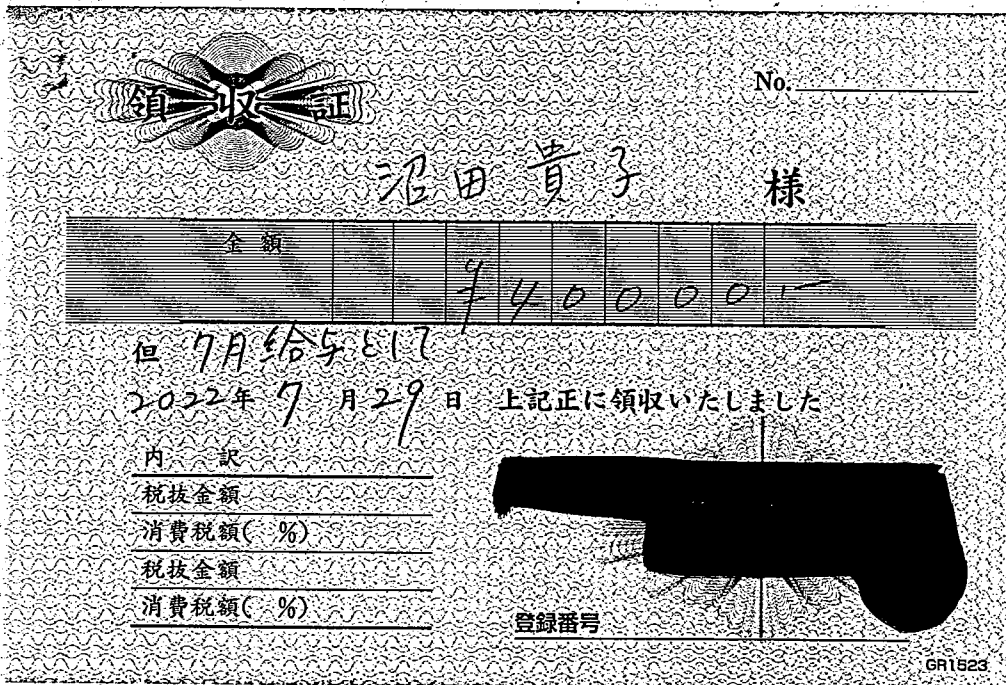 領収証
No.
沼田貴子 様
金額 ¥40000.-
但 7月給与として
2022年 7月29日 上記正に領収いたしました
内訳
税抜金額
消費税額( %)
税抜金額
消費税額( %)
登録番号
GR1523